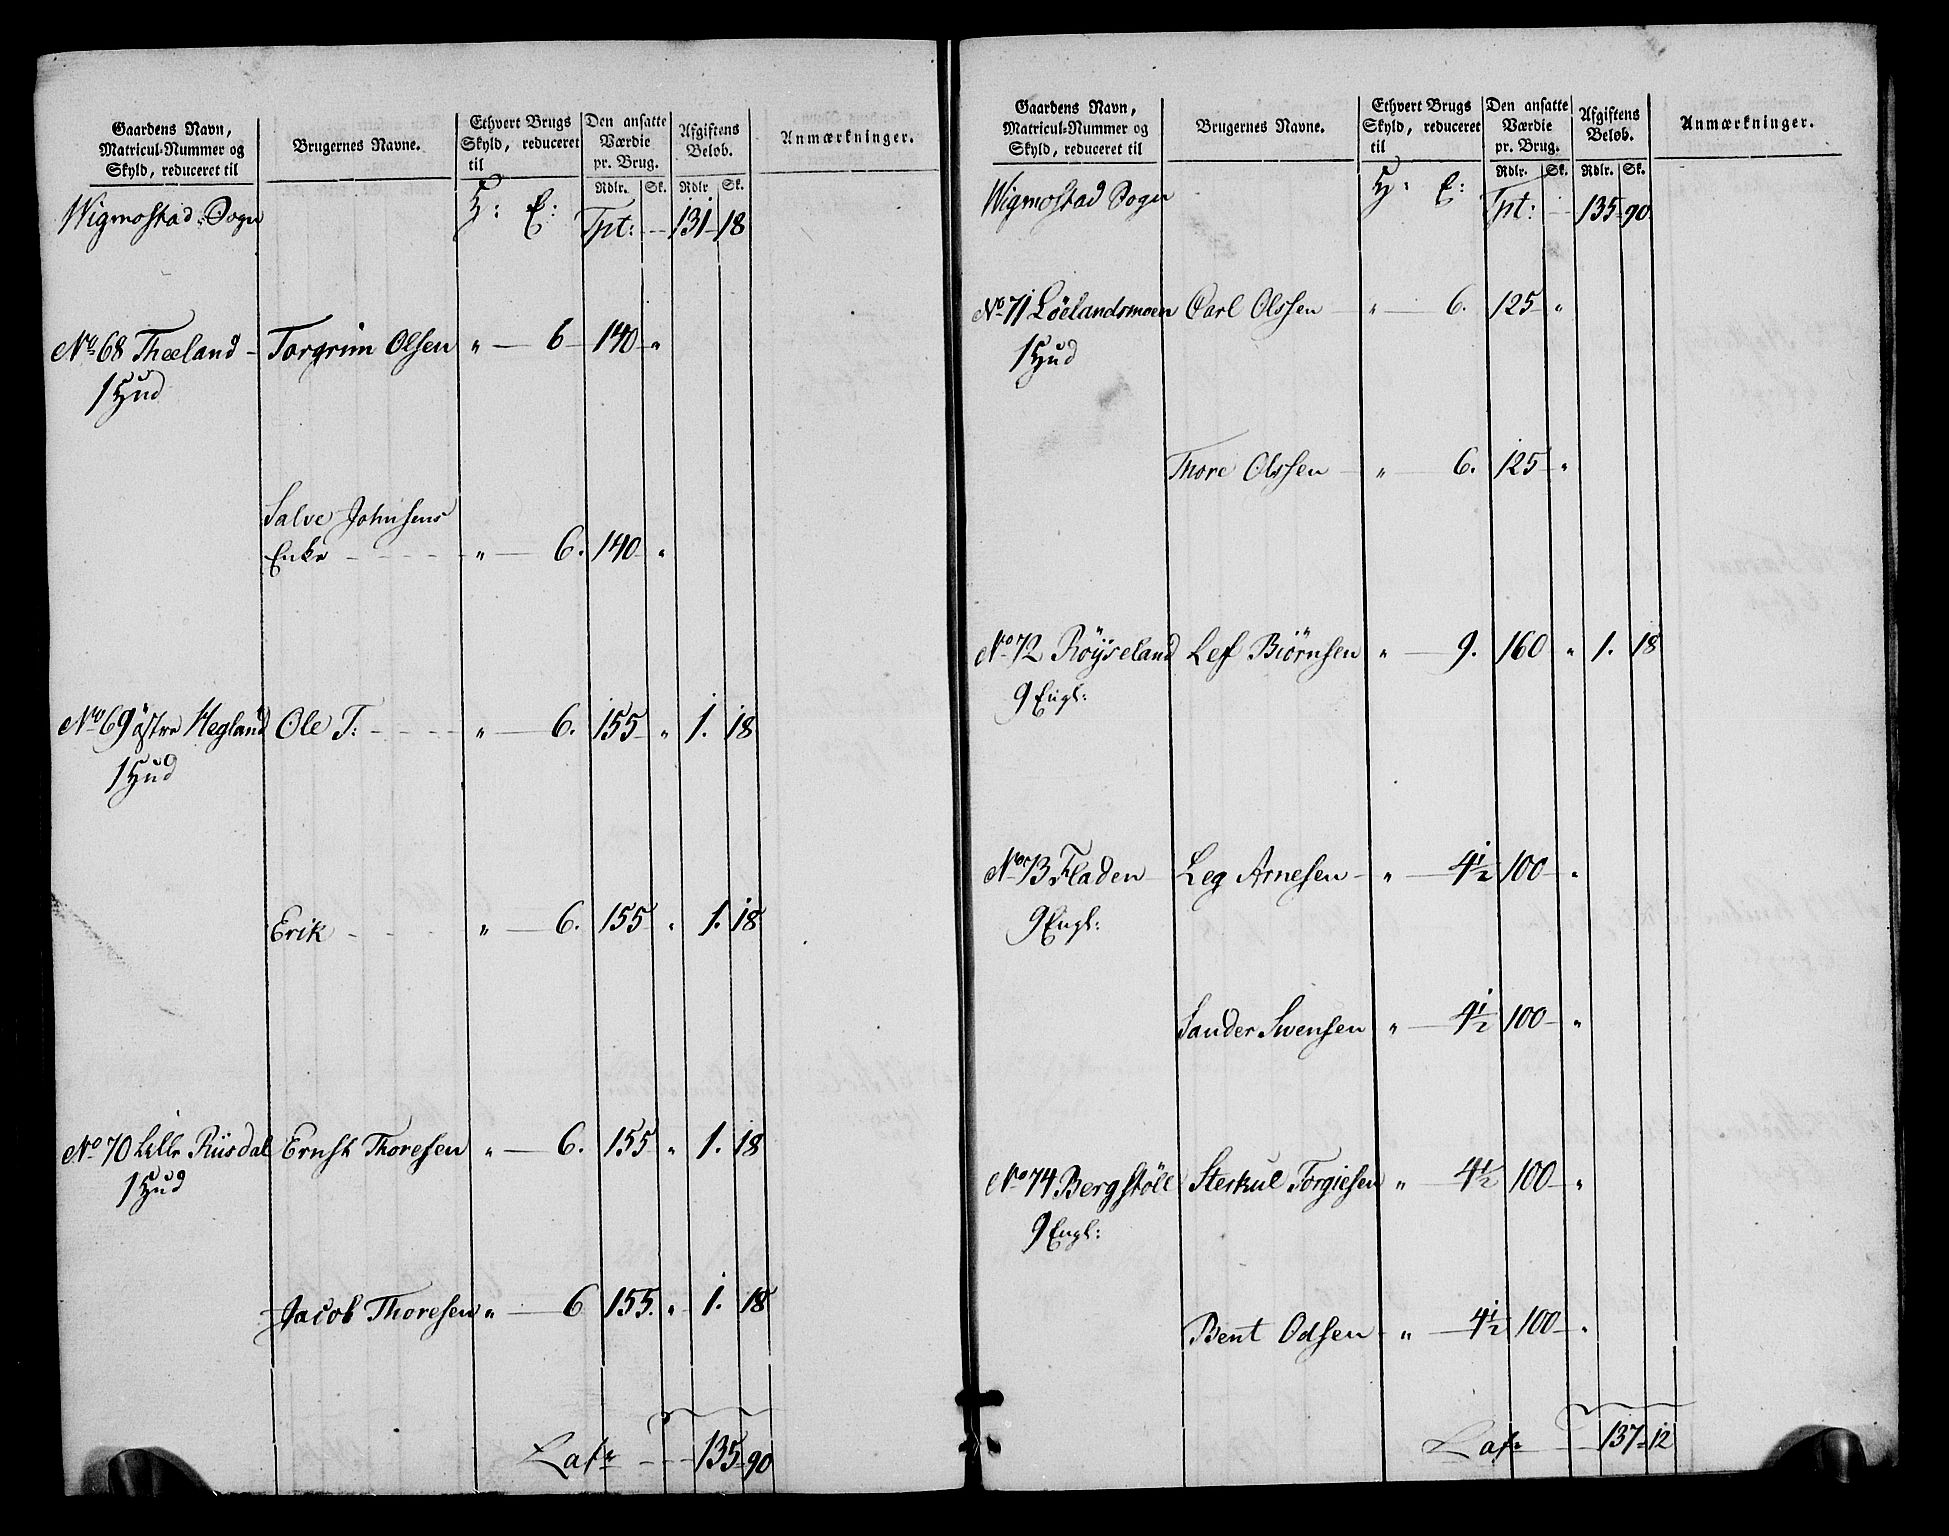 Gaardens Navn, Matricul-Nummer og Skyld, reduceret til | Brugernes Navne. | Ethvert Brugs Skyld, reduceret til | Den ansatte Værdie pr. Brug. | Afgiftens Beløb. | Anmærkninger.
Rdlr. Sk. Rdlr. Sk.
Wigmostad Sogn H: E: Tpt: 131 18
No 68 Theeland Torgrim Olsen " 6 140 "
1 Hud
Salve Johnsens
Enke " 6. 140 "
No 69 östre Hegland Ole T: " 6. 155 " 1. 18
1 Hud
Erik " 6. 155 " 1. 18
No 70 Lille Riisdal Ernst Thoresen " 6. 155 " 1. 18
1 Hud
Jacob Thoresen " 6 155. " 1. 18
Lats 135 90
Gaardens Navn, Matricul-Nummer og Skyld, reduceret til | Brugernes Navne. | Ethvert Brugs Skyld, reduceret til | Den ansatte Værdie pr. Brug. | Afgiftens Beløb. | Anmærkninger.
Rdlr. Sk. Rdlr. Sk.
Wigmostad Sogn H: E: Tpt: 135 90
No 71 Löelandsmoen Carl Olssen " 6. 125 "
1 Hud
Thore Olssen " 6. 125 "
No 72 Röyseland Lef Biörnsen " 9. 160 " 1. 18
9 Engl:
No 73 Fladen Leg Arnesen " 4½ 100 "
9 Engl:
Sander Swensen " 4½ 100 "
No 74 Bergstöll Sterkul Torgiesen " 4½ 100 "
9 Engl:
Bent Odsen " 4½ 100 "
Lats 137 12